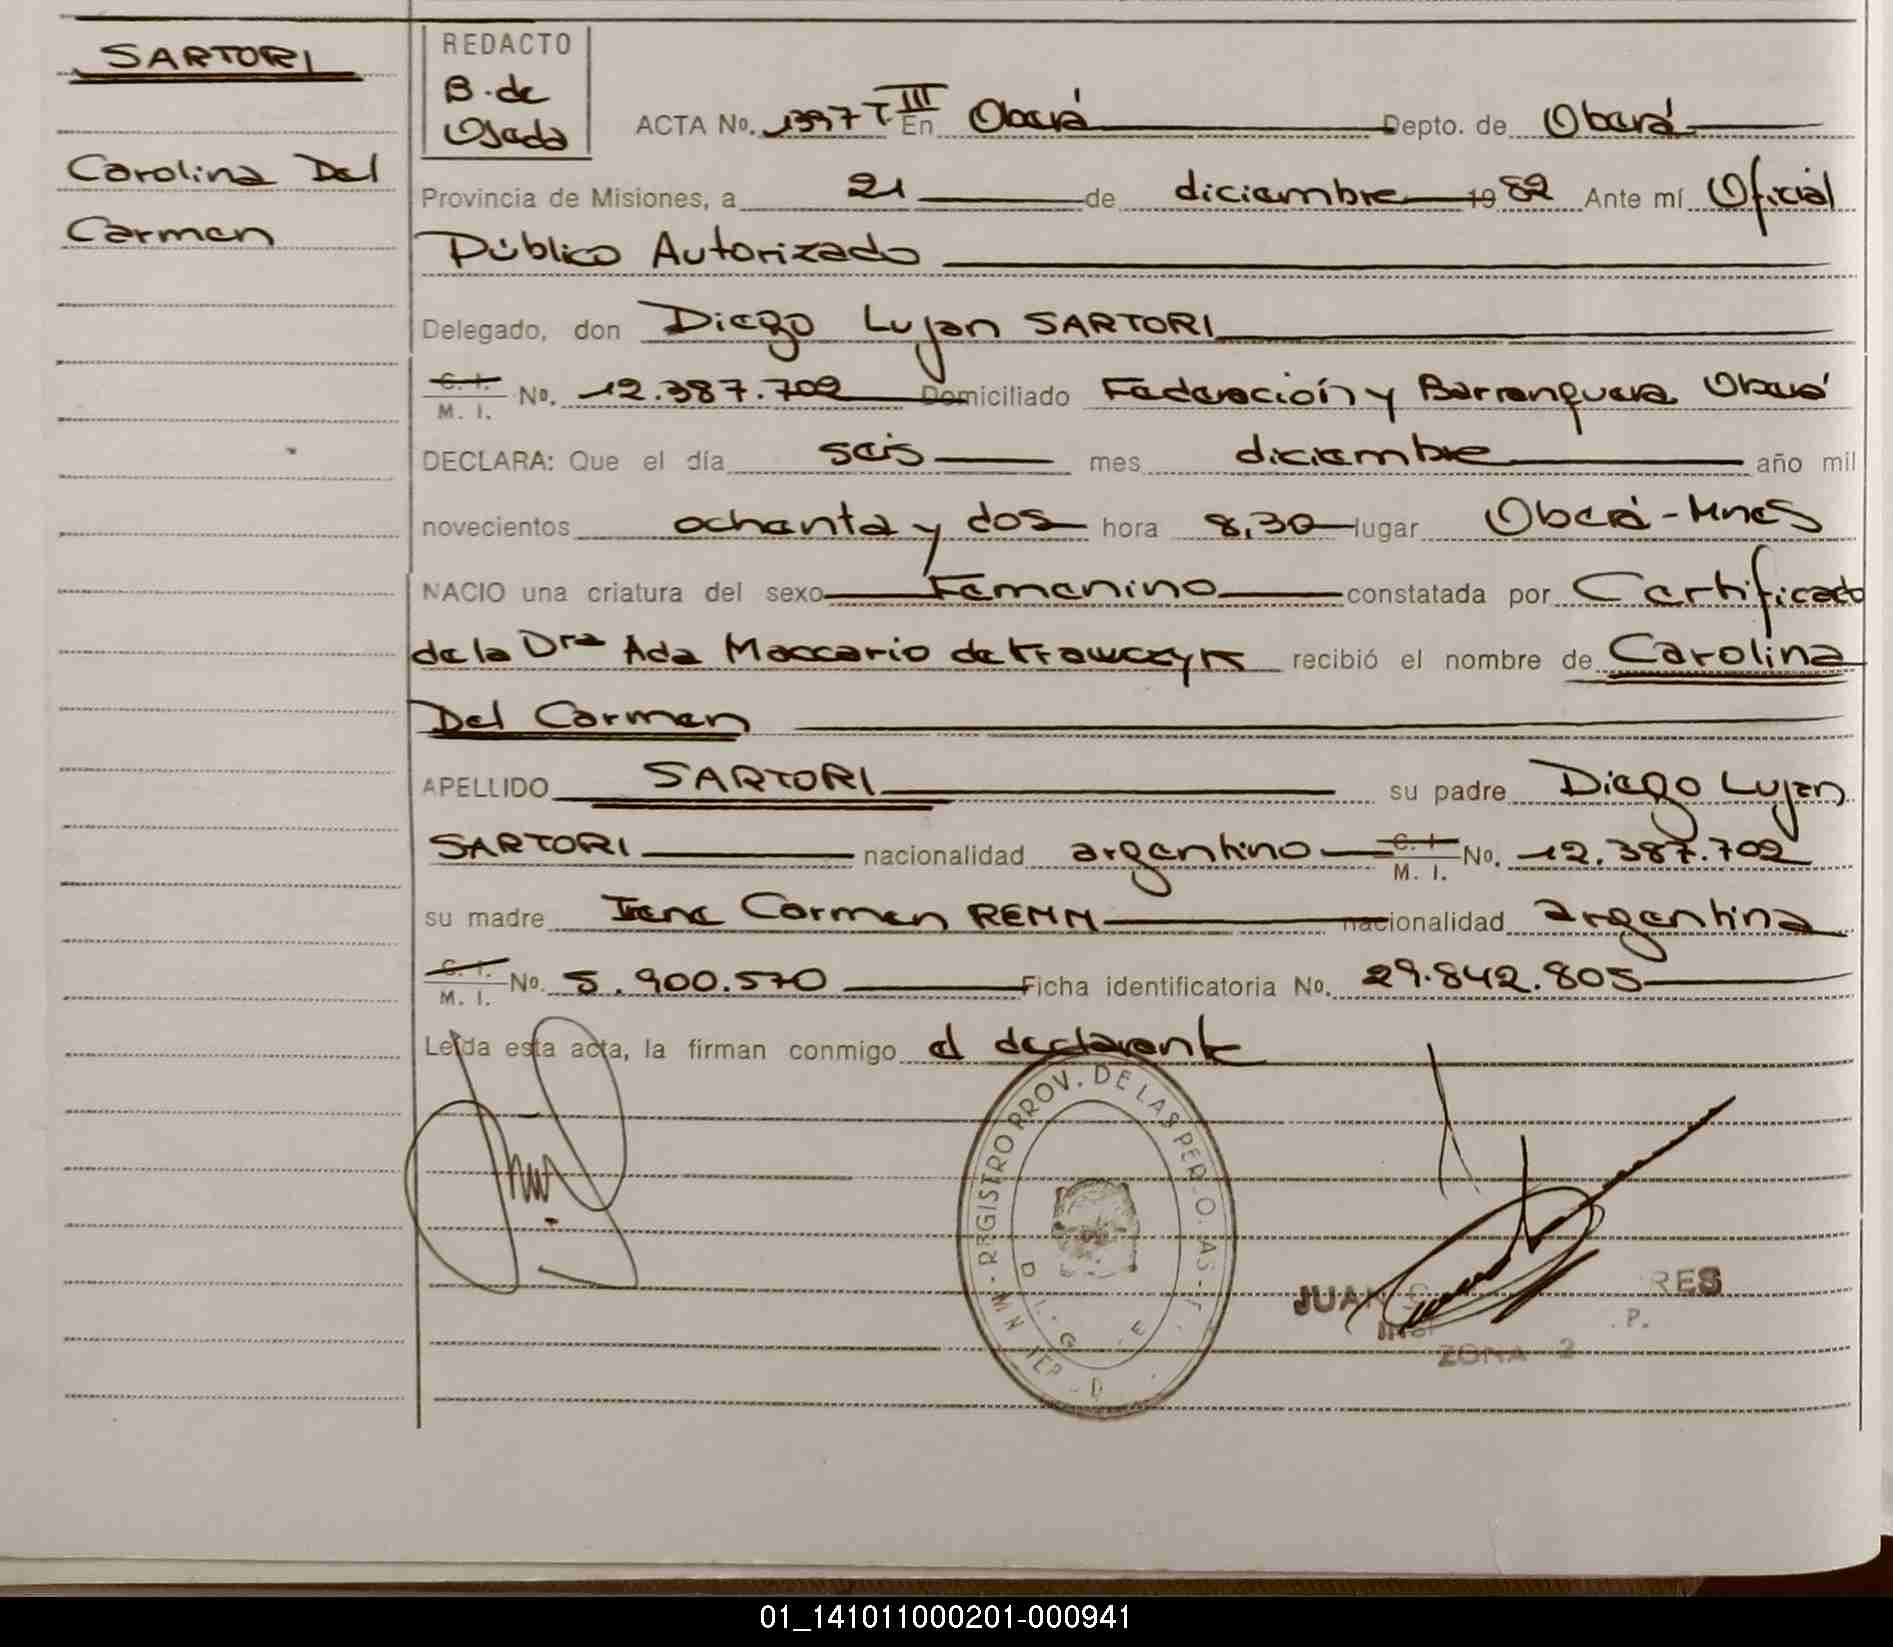 SARTORI
Carolina Del
Carmen
REDACTO
B. de
Osada
ACTA No. 1397 T III En Oberá Depto. de Oberá
Provincia de Misiones, a 21 de diciembre 1982 Ante mí Oficial
Público Autorizado
Delegado, don Diego Lujan SARTORI
C. I. M. I. No. 12.387.702 Domiciliado Federación y Barranquera Oberá
DECLARA: Que el día seis mes diciembre año mil
novecientos ochenta y dos hora 8,30 lugar Oberá - Mnes
NACIO una criatura del sexo Femenino constatada por Certificado
de la Dra Ada Maccario de Krawczyk recibió el nombre de Carolina
Del Carmen
APELLIDO SARTORI su padre Diego Lujan
SARTORI nacionalidad argentino C. I. M. I. No. 12.387.702
su madre Irene Carmen REMM nacionalidad argentina
C. I. M. I. No. 5.900.570 Ficha identificatoria No. 29.842.805
Leída esta acta, la firman conmigo el declarante
REGISTRO PROV. DE LAS PER
JUAN RES
P.
ZONA 2
01_141011000201-000941